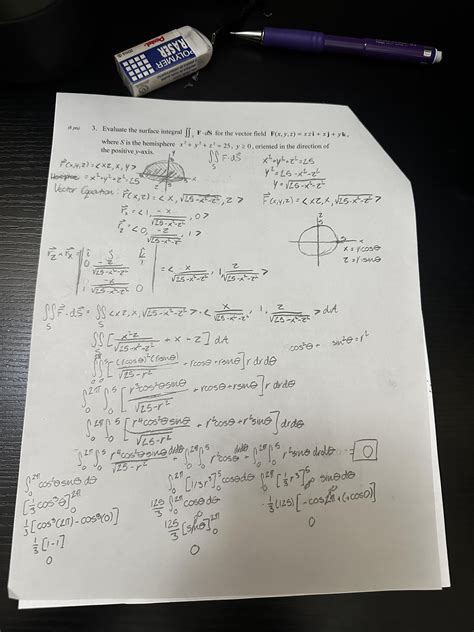 Pentel
POLYMER
ERASER
3. Evaluate the surface integral ∬ F·dS for the vector field F(x, y, z) = xz i + x j + y k,
where S is the hemisphere x² + y² + z² = 25, y ≥ 0, oriented in the direction of
the positive y-axis.
∬_S F·dS
F(x,y,z) = <xz, x, y>
x²+y²+z²=25
Vector Equation: r(x,z) = <x, √25-x²-z², z>
x²+y²+z²=25
y²=25-x²-z²
y=√25-x²-z²
F(x,y,z) = <xz, x, √25-x²-z²>
r_x = <1, -x/√25-x²-z², 0>
r_z = <0, -z/√25-x²-z², 1>
x = rcosθ
z = rsinθ
r_z × r_x
i j k
0 -z/√25-x²-z² 1
1 -x/√25-x²-z² 0
= <x/√25-x²-z², 1, z/√25-x²-z²>
∬_S F·dS = ∬ <xz, x, √25-x²-z²> · <x/√25-x²-z², 1, z/√25-x²-z²> dA
∬ [x²z/√25-x²-z² + x + z] dA
cos²θ + sin²θ = r²
∬ [(rcosθ)²(rsinθ)/√25-r² + rcosθ + rsinθ] r dr dθ
∫₀^2π ∫₀^5 [r³cos²θsinθ/√25-r² + rcosθ + rsinθ] r dr dθ
∫₀^2π ∫₀^5 [r⁴cos²θsinθ/√25-r² + r²cosθ + r²sinθ] dr dθ
∫₀^2π ∫₀^5 r⁴cos²θsinθ/√25-r² dr dθ + ∫₀^2π ∫₀^5 r²cosθ dr dθ + ∫₀^2π ∫₀^5 r²sinθ dr dθ = 0
∫₀^2π cos²θ sinθ dθ
∫₀^2π [1/3 r³]₀^5 cosθ dθ
∫₀^2π [1/3 r³]₀^5 sinθ dθ
[-1/3 cos³θ]₀^2π
125/3 ∫₀^2π cosθ dθ
1/3 (125) [-cos2π + cos0]
1/3 [cos³(2π) - cos³(0)]
125/3 [sinθ]₀^2π
0
1/3 [1-1]
0
0